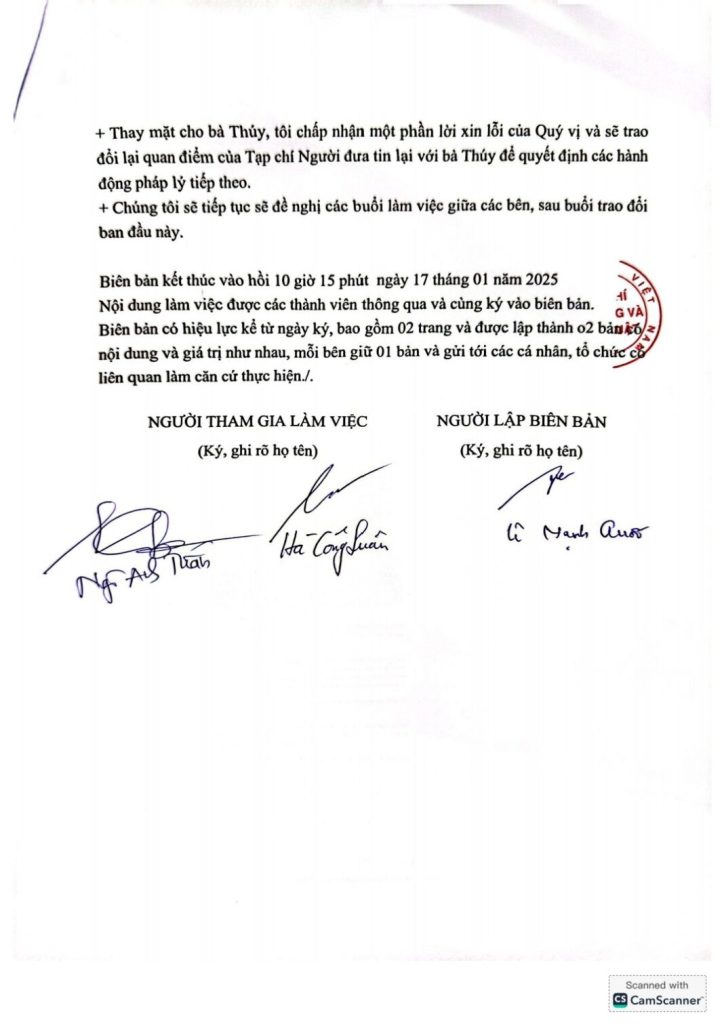 + Thay mặt cho bà Thúy, tôi chấp nhận một phần lời xin lỗi của Quý vị và sẽ trao
đổi lại quan điểm của Tạp chí Người đưa tin lại với bà Thúy để quyết định các hành
động pháp lý tiếp theo.
+ Chúng tôi sẽ tiếp tục sẽ đề nghị các buổi làm việc giữa các bên, sau buổi trao đổi
ban đầu này.
Biên bản kết thúc vào hồi 10 giờ 15 phút ngày 17 tháng 01 năm 2025
Nội dung làm việc được các thành viên thông qua và cùng ký vào biên bản.
Biên bản có hiệu lực kể từ ngày ký, bao gồm 02 trang và được lập thành o2 bản có
nội dung và giá trị như nhau, mỗi bên giữ 01 bản và gửi tới các cá nhân, tổ chức có
liên quan làm căn cứ thực hiện./.
VIỆT NAM
HÍ
G VÀ
NGƯỜI THAM GIA LÀM VIỆC
(Ký, ghi rõ họ tên)
NGƯỜI LẬP BIÊN BẢN
(Ký, ghi rõ họ tên)
Hà Công Luân
Mạnh
Scanned with
CS CamScanner